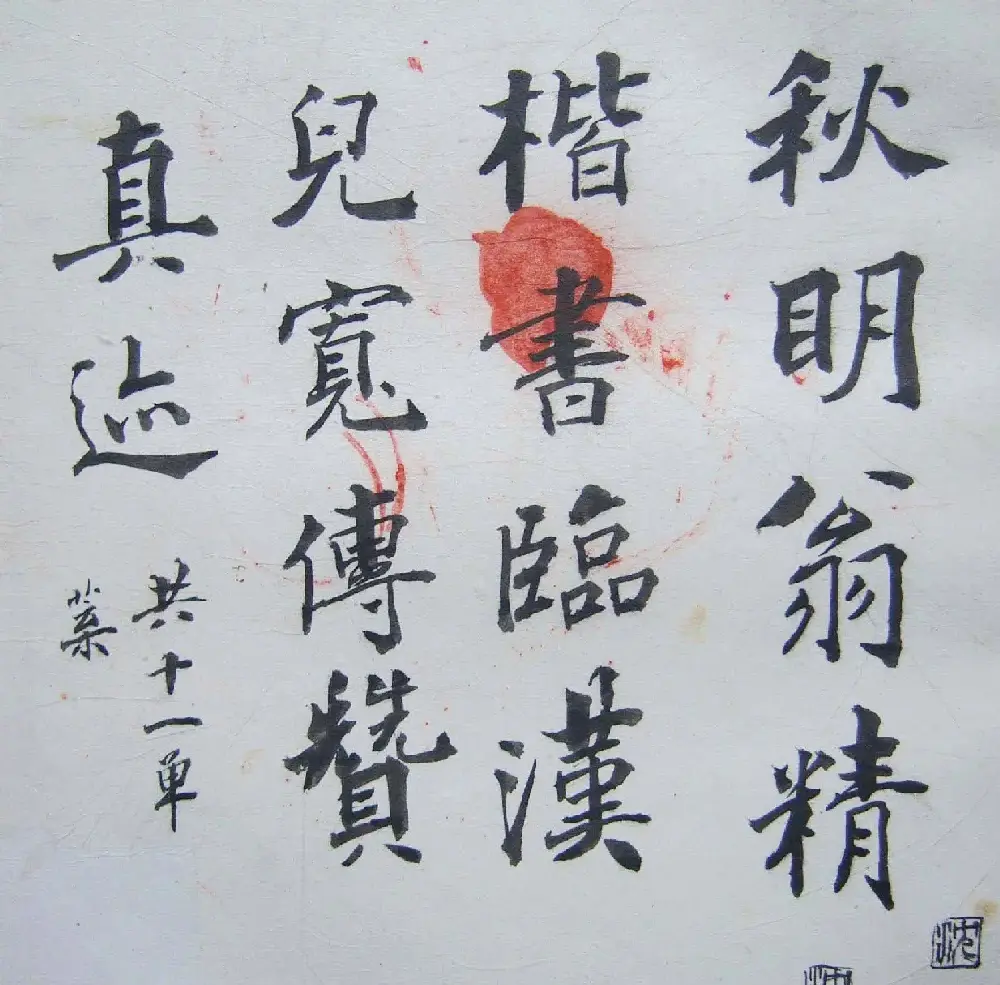 秋明翁精
楷書臨漢
兒寬傳贊
真迹
共十一單
葉
沈